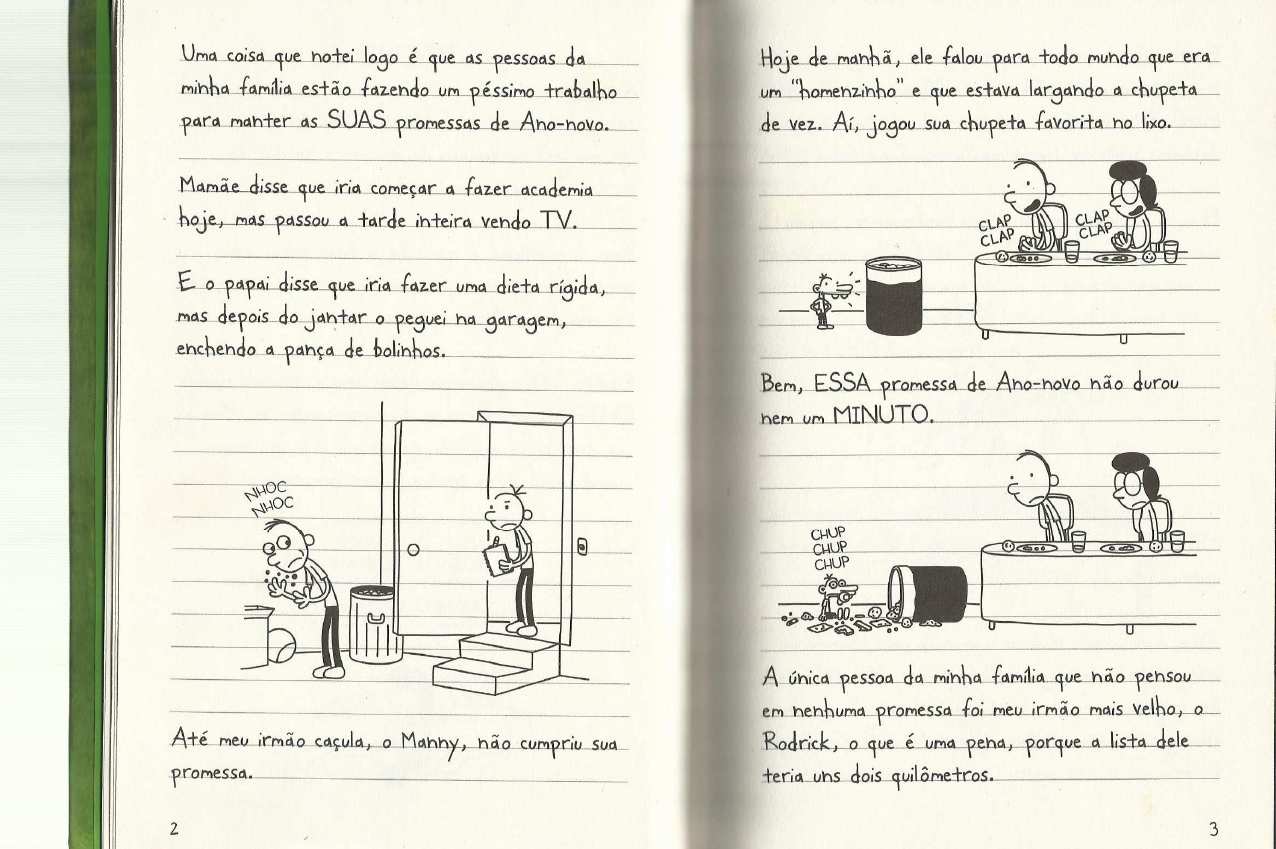 Uma coisa que notei logo é que as pessoas da
minha família estão fazendo um péssimo trabalho
para manter as SUAS promessas de Ano-novo.
Mamãe disse que iria começar a fazer academia
hoje, mas passou a tarde inteira vendo TV.
E o papai disse que iria fazer uma dieta rígida,
mas depois do jantar o peguei na garagem,
enchendo a pança de bolinhos.
NHOC
NHOC
Até meu irmão caçula, o Manny, não cumpriu sua
promessa.
2
Hoje de manhã, ele falou para todo mundo que era
um "homenzinho" e que estava largando a chupeta
de vez. Aí, jogou sua chupeta favorita no lixo.
CLAP
CLAP
CLAP
CLAP
Bem, ESSA promessa de Ano-novo não durou
nem um MINUTO.
CHUP
CHUP
CHUP
A única pessoa da minha família que não pensou
em nenhuma promessa foi meu irmão mais velho, o
Rodrick, o que é uma pena, porque a lista dele
teria uns dois quilômetros.
3